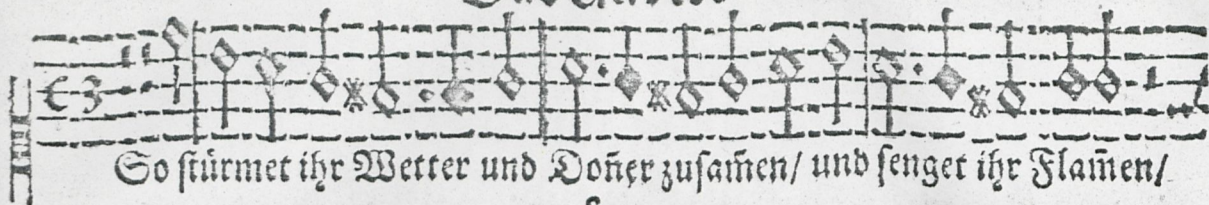 So stürmet ihr Wetter und Doñer zusam̃en/ und senget ihr Flam̃en/